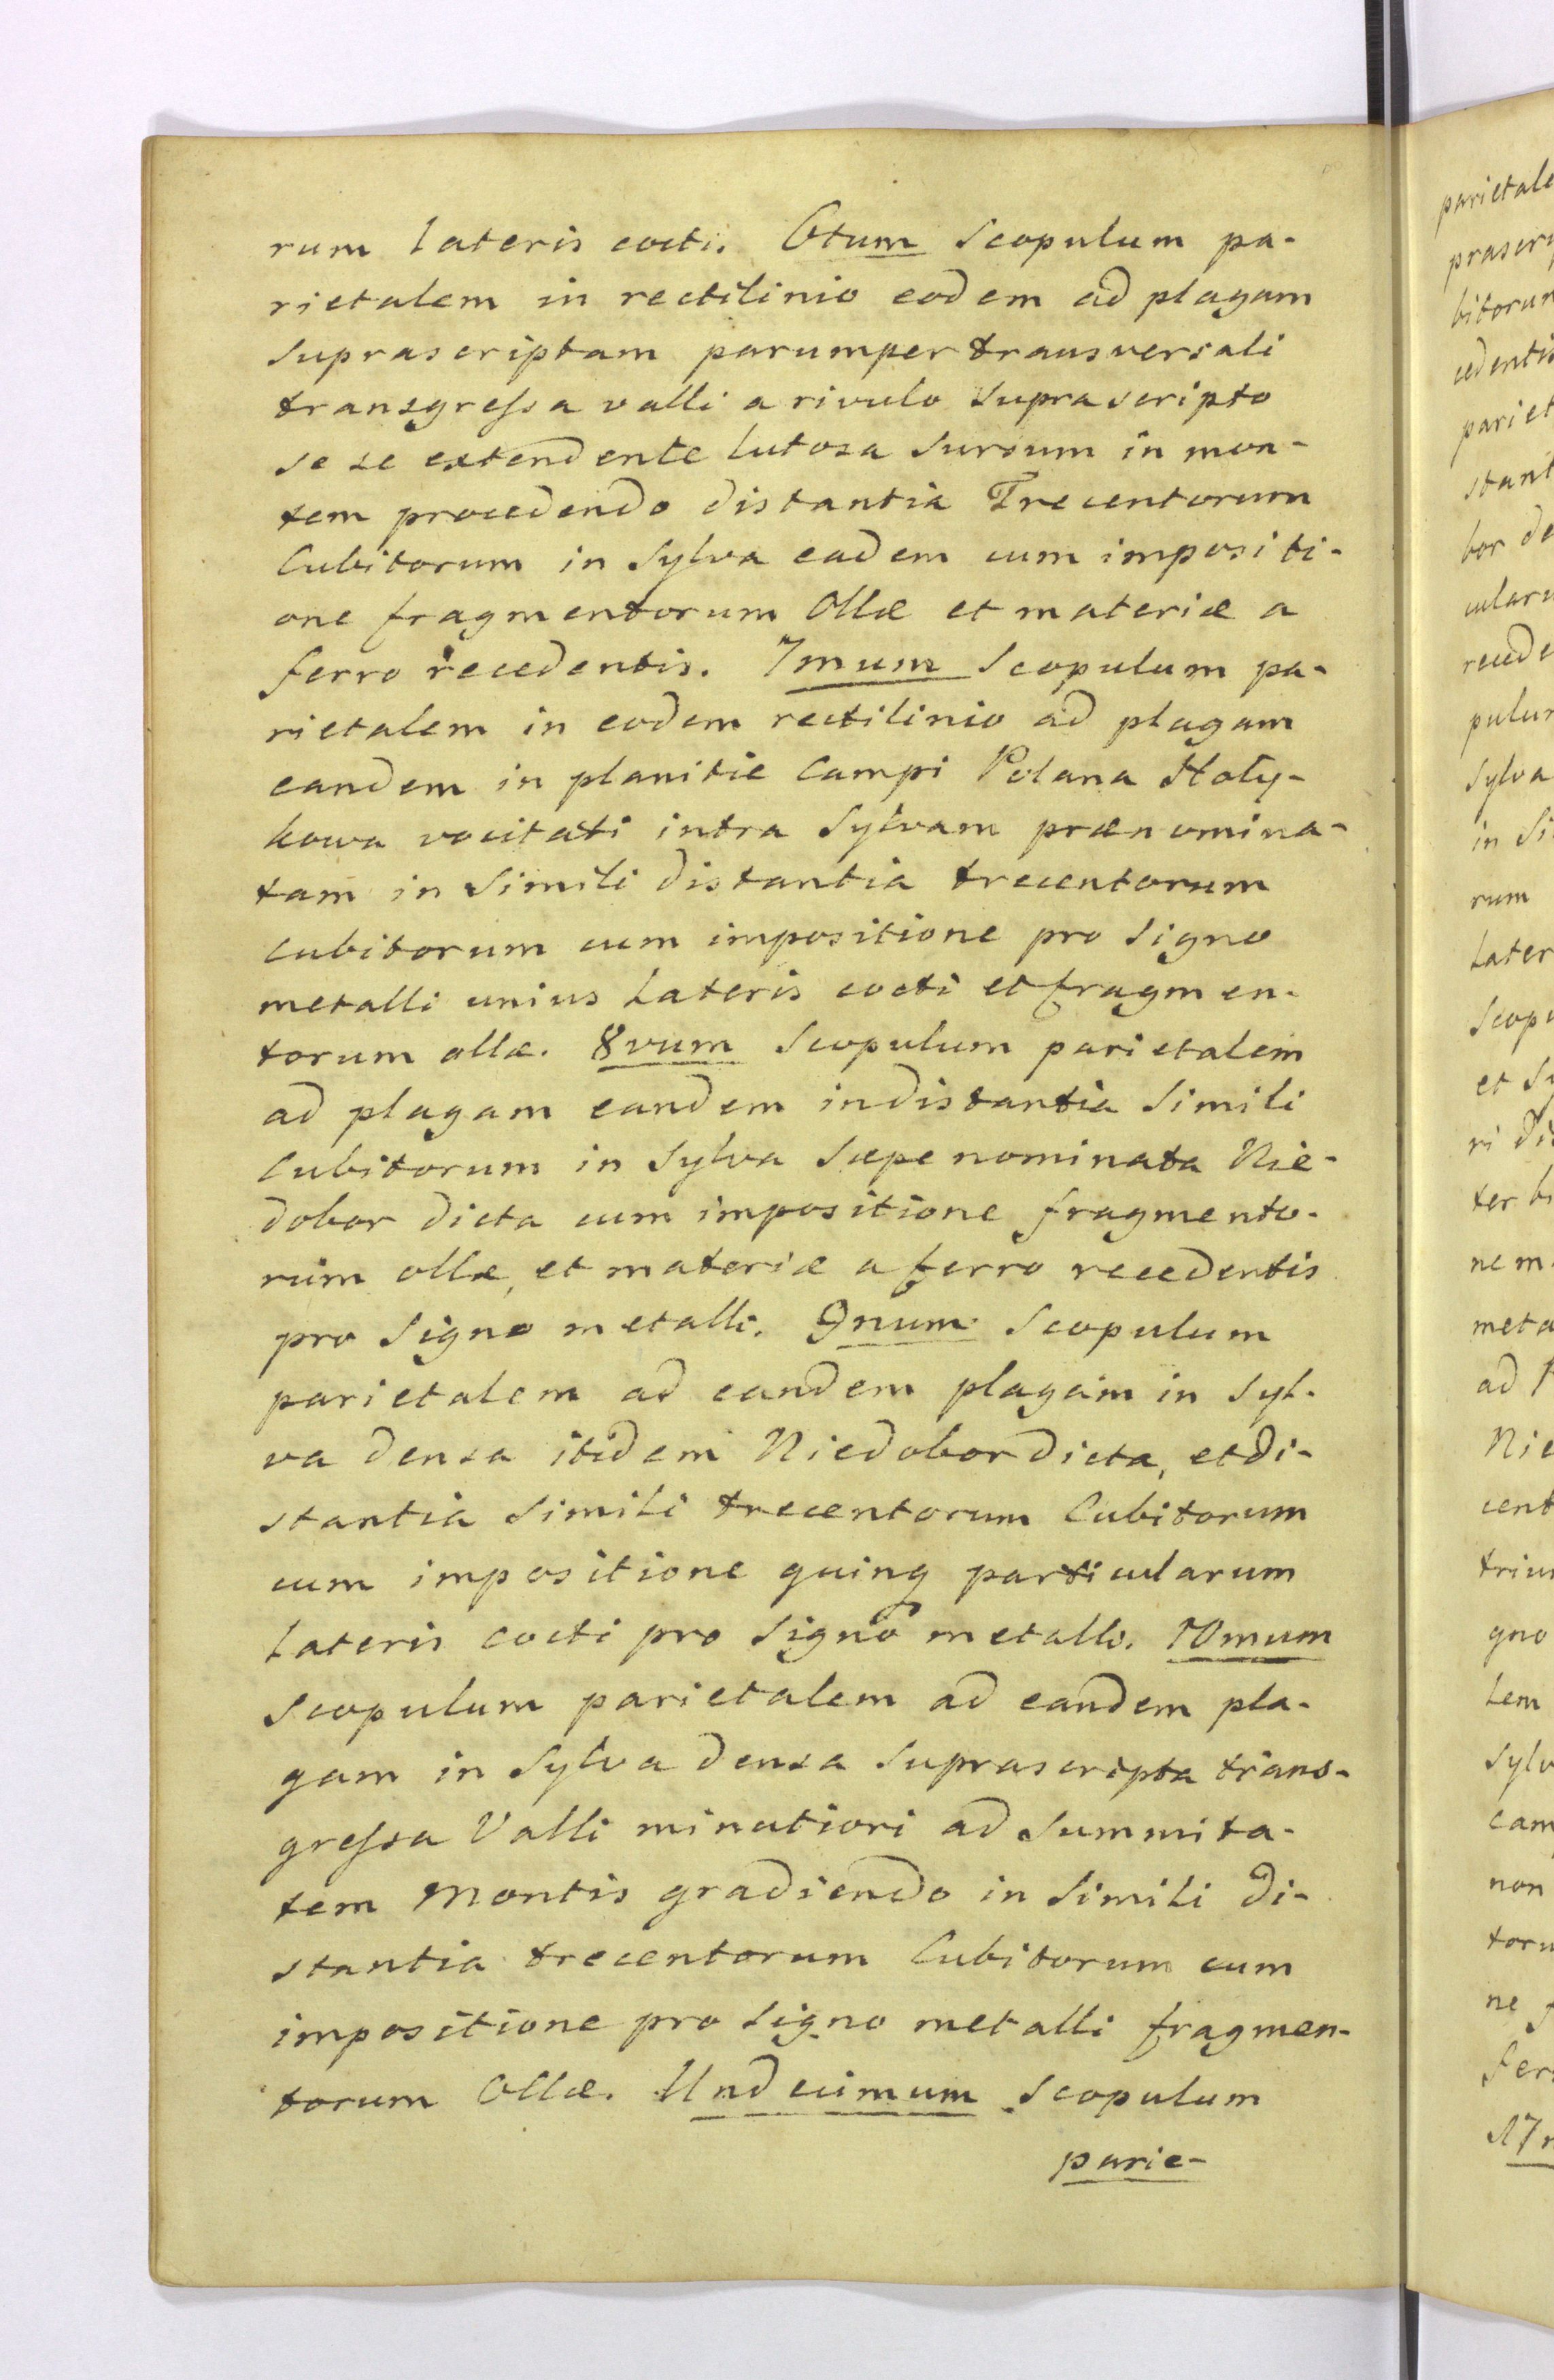 rum Lateris cocti. 6tum Scopulum pa-
rietalem in rectilinio eodem ad plagam
Suprascriptam parumper transversali
transgressa valli a rivulo Suprascripto
se se extendente lutosa Sursum in mon-
tem procedendo distantia Trecentorum
Cubitorum in Sylva eadem cum impositi-
one fragmentorum Ollæ et materiæ a
ferro recedentis. 7mum Scopulum pa-
rietalem in eodem rectilinio ad plagam
eandem in planitie Campi Polana Hoły-
kowa vocitati intra Sylvam prænomina-
tam in Simili distantia trecentorum
Cubitorum cum impositione pro Signo
metalli unius Lateris cocti et fragmen-
torum ollæ. 8vum Scopulum parietalem
ad plagam eandem in distantia Simili
Cubitorum in Sylva Sæpe nominata Nie-
dobor dicta cum impositione fragmento-
rum ollæ, et materiæ a ferro recedentis
pro Signo metalli. 9num Scopulum
parietalem ad eandem plagam in Syl-
va densa itidem Niedobor dicta, et di-
stantia Simili trecentorum Cubitorum
cum impositione quinq particularum
Lateris cocti pro Signo metalli. 10mum
Scopulum parietalem ad eandem pla-
gam in Sylva densa Suprascripta trans-
gressa Valli minutiori ad Summita-
tem Montis gradiendo in Simili di-
stantia trecentorum Cubitorum cum
impositione pro Signo metalli fragmen-
torum Ollæ. Undecimum Scopulum
parie-
parietale
bitorum
cedentis
pariet
stant
bor de
recede
Sylva
in Si
rum
Later
Scopu
et Sy
ri di
ter
ne m
meta
ad
Nie
cent
trium
gno
Lem
Sylv
cam
non
toru
ne f
fer